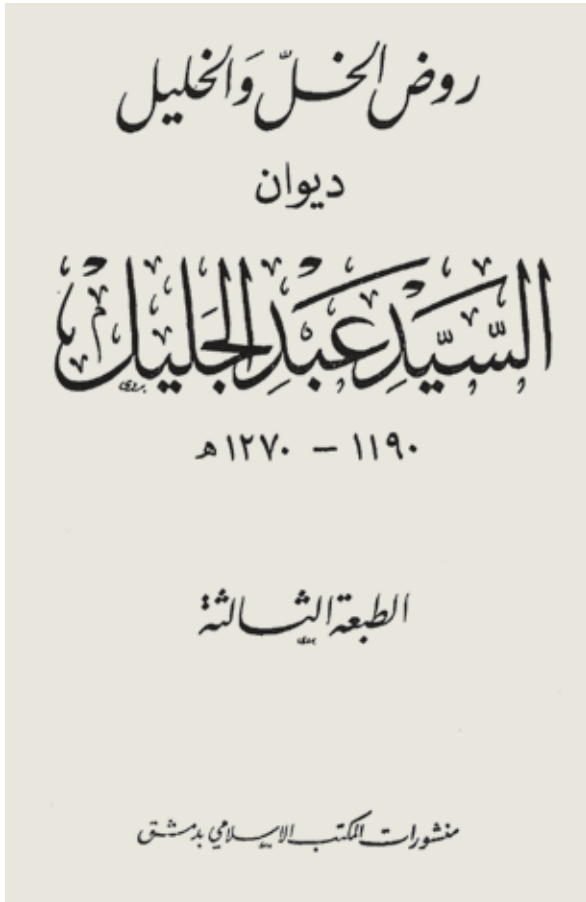 روض الخلّ وَالخليل
ديوان
السّيّدِ عَبْدِ الجَليْل
بدوي
١١٩٠ – ١٢٧٠ هـ
الطبعة الثالثة
بدوي
منشورات المكتب الإسلامي بدمشق